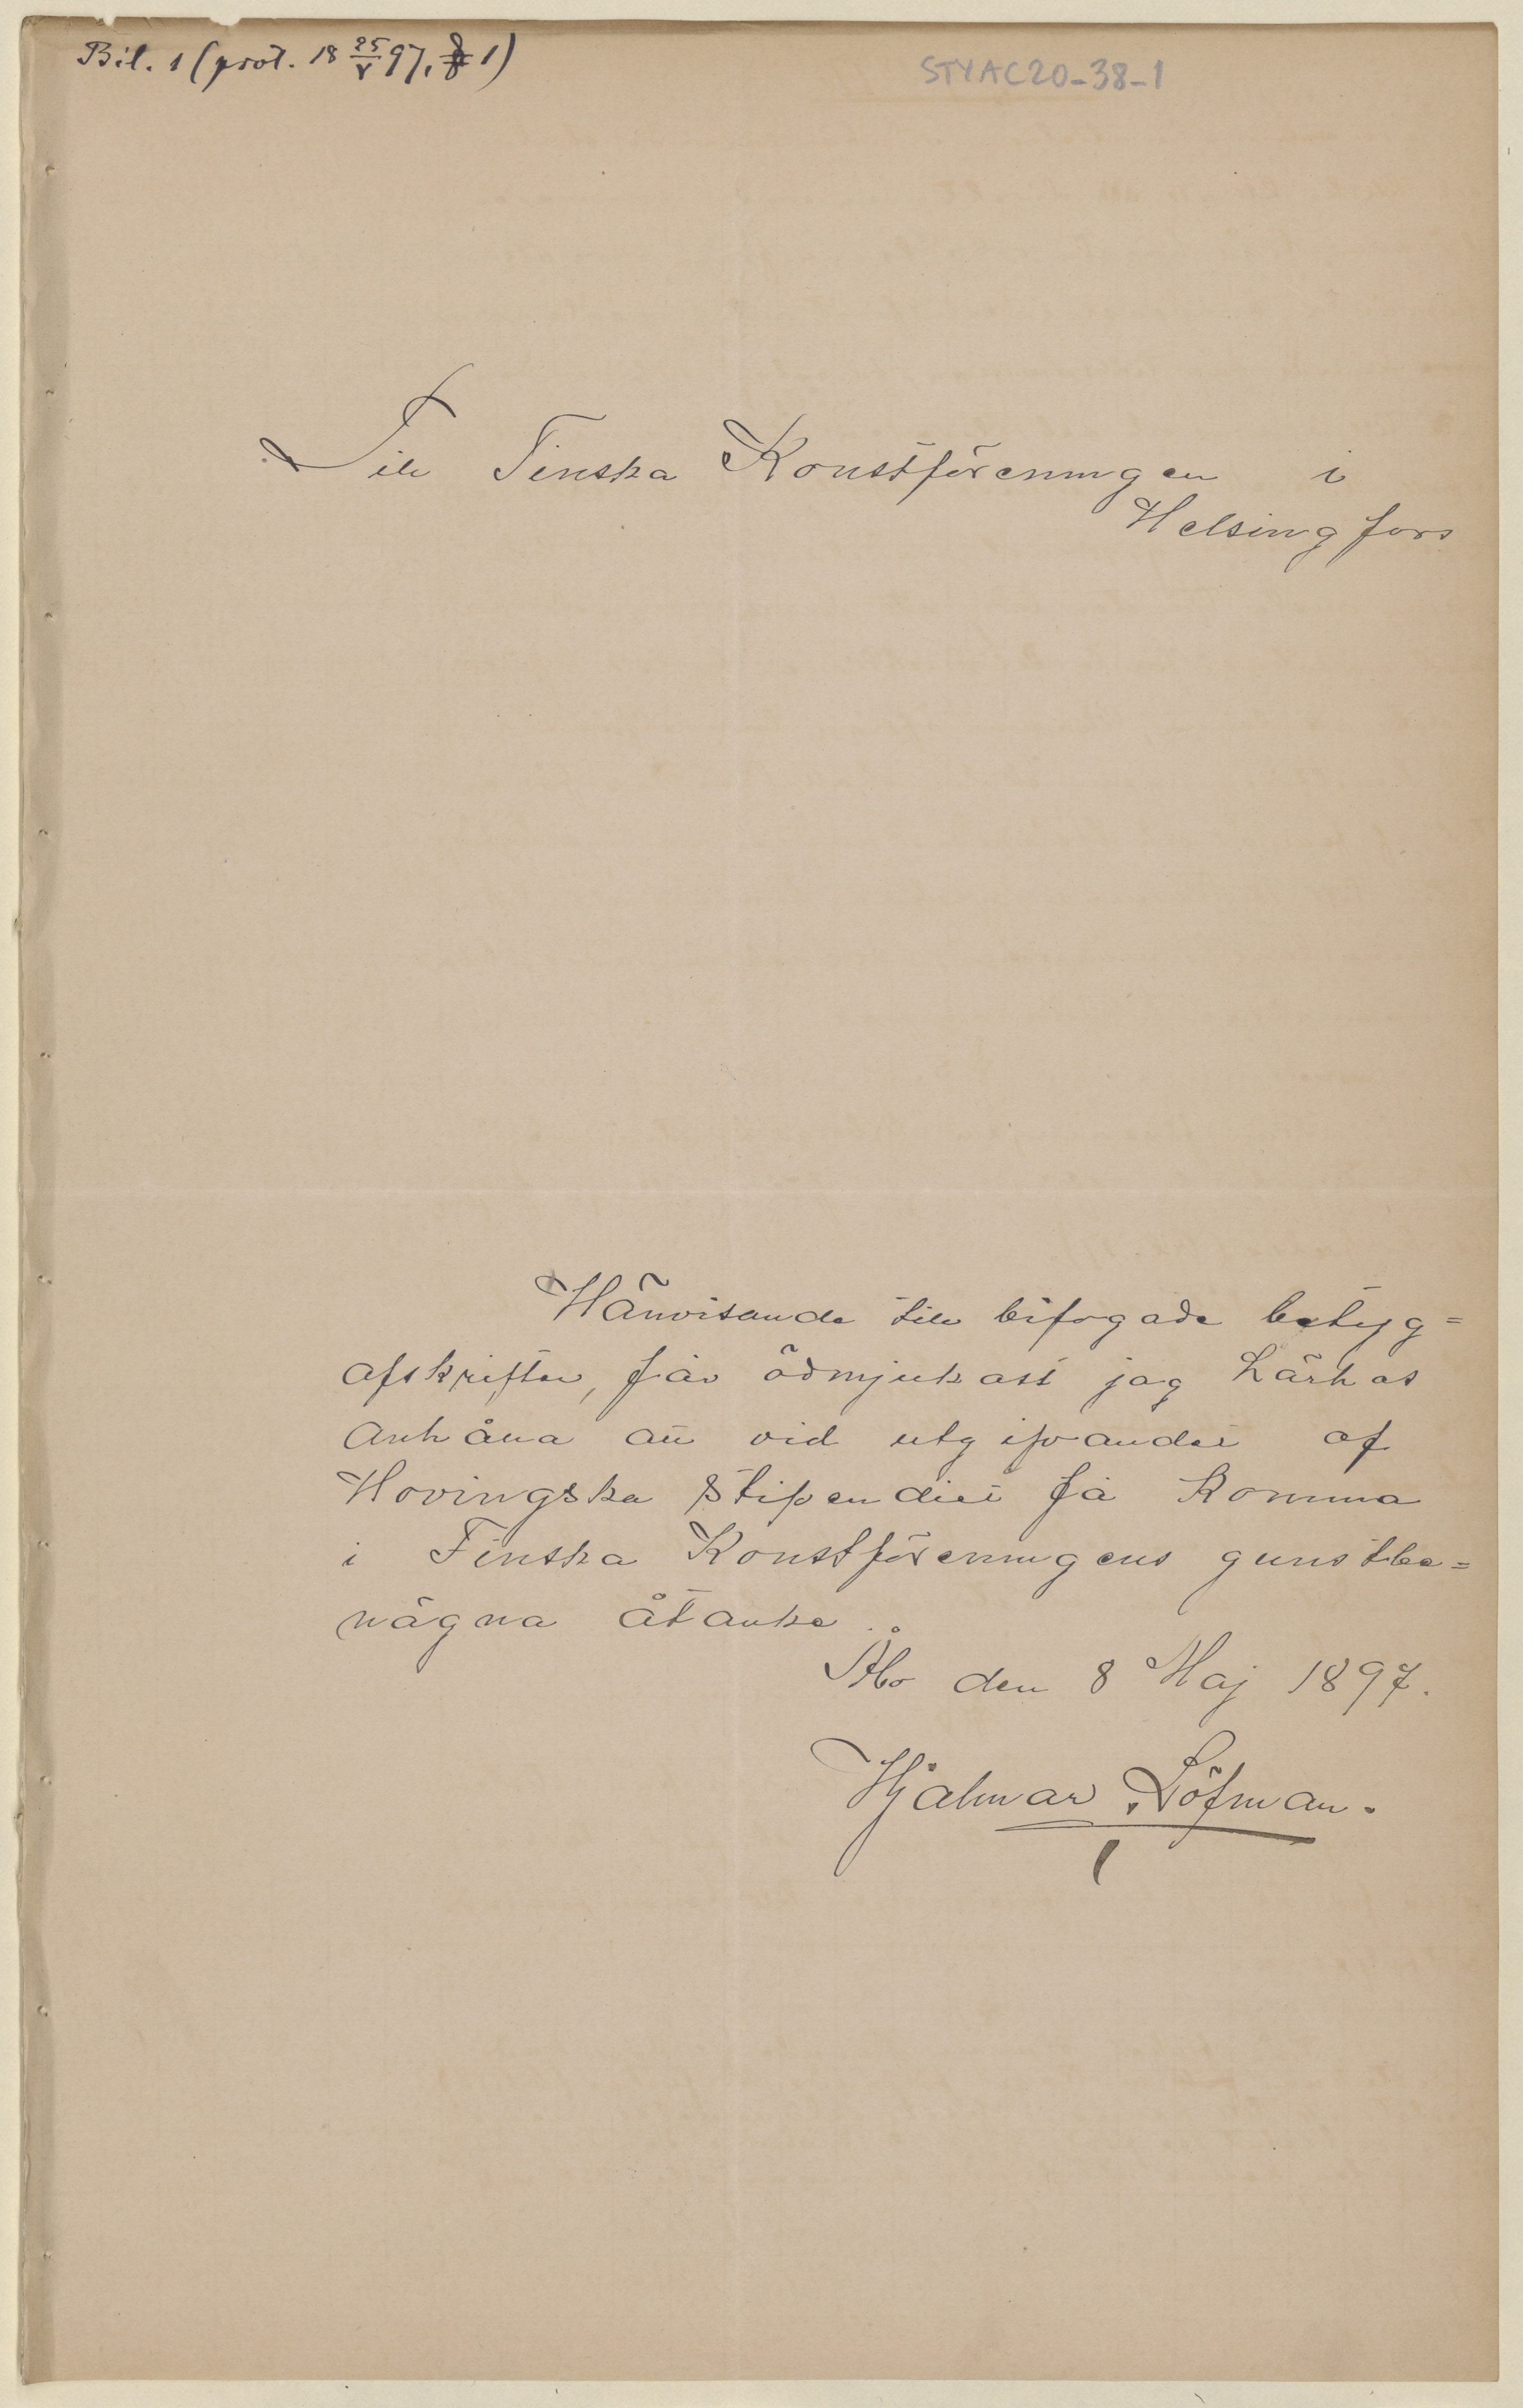 Bil. 1 (prot. 18 25/V 97, § 1)
STYAC20-38-1
Till Finska Konstföreningen i
Helsingfors
Hänvisande till bifogade betyg=
afskrifter, får ödmjukast jag härhos
anhåna att vid utgifvandet af
Hovingska Stipendiet få komma
i Finska Konstföreningens gunstbe=
nägna åtanke.
Åbo den 8 Maj 1897.
Hjalmar Löfman.